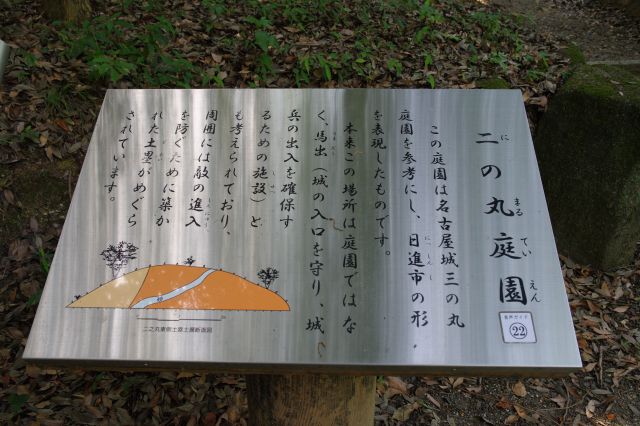 二の丸庭園
に まる てい えん
音声ガイド
22
この庭園は名古屋城三の丸
庭園を参考にし、日進市の形
にっしんし
を表現したものです。
本来この場所は庭園ではな
く、馬出(城の入口を守り、城
兵の出入を確保す
るための施設)と
も考えられており、
周囲には敵の進入
を防ぐために築か
れた土塁がめぐら
されています。
二之丸東側土塁土層断面図